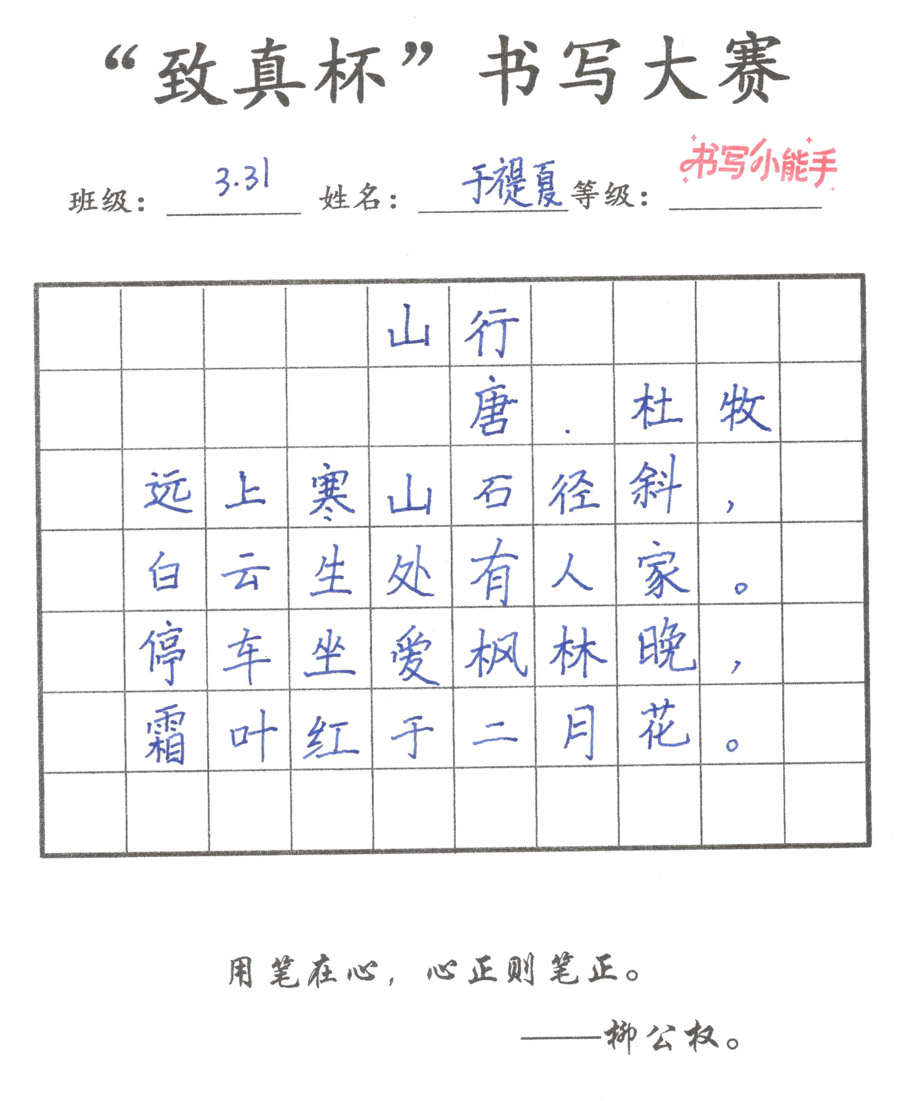 “致真杯”书写大赛
书写小能手
班级：3.31 姓名：于禔夏 等级：
山行
唐．杜牧
远上寒山石径斜，
白云生处有人家。
停车坐爱枫林晚，
霜叶红于二月花。
用笔在心，心正则笔正。
——柳公权。